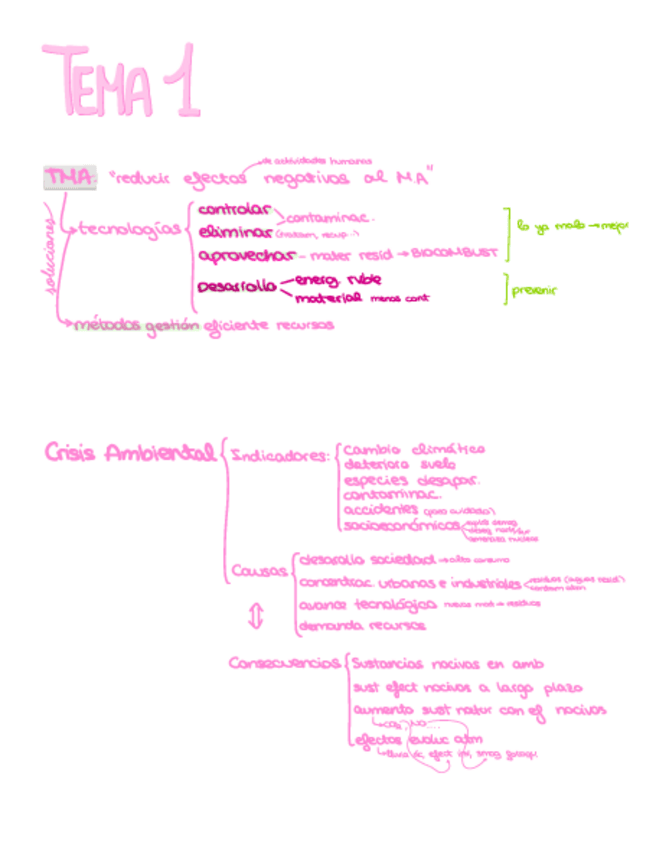 TEMA 1
de actividades humanas
TMA: "reducir efectos negativos al M.A"
soluciones
tecnologías
controlar
eliminar
contaminac.
aprovechar - mater resid → BIOCOMBUST
lo ya malo → mejor
Desarrollo
energ. rvble
material menos cont
prevenir
métodos gestión eficiente recursos
Crisis Ambiental
Indicadores:
Cambio climático
deterioro suelo
especies desapar.
contaminac.
accidentes (poco cuidado)
socioeconómicos
explos demog
desig norte/sur
amenaza nuclear
Causas
desarollo sociedad → alto consumo
concentrac. urbanas e industriales
residuos (aguas resid)
contam
avance tecnológico nuevos mat → residuos
demanda recursos
⇕
Consecuencias
Sustancias nocivas en amb
sust efect nocivos a largo plazo
aumento sust natur con ef nocivos
efectos evoluc atm
lluvia ác, efect inv, smog fotoquí